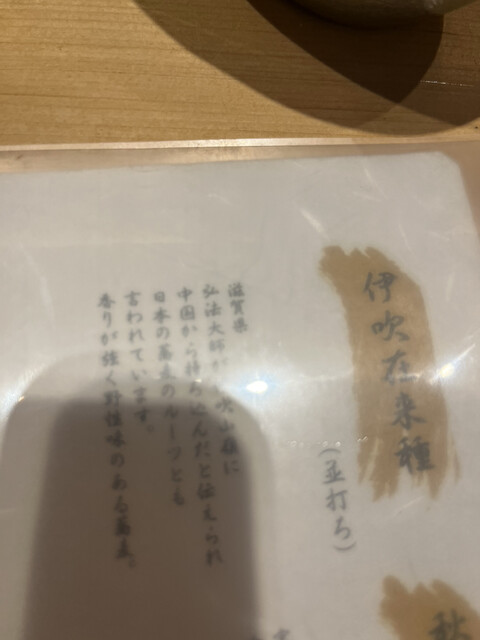 伊吹在来種
（並打ち）
滋賀県
弘法大師が伊吹山麓に
中国から持ち込んだと伝えられ
日本の蕎麦のルーツとも
言われています。
香りが強く野性味のある蕎麦。
秋